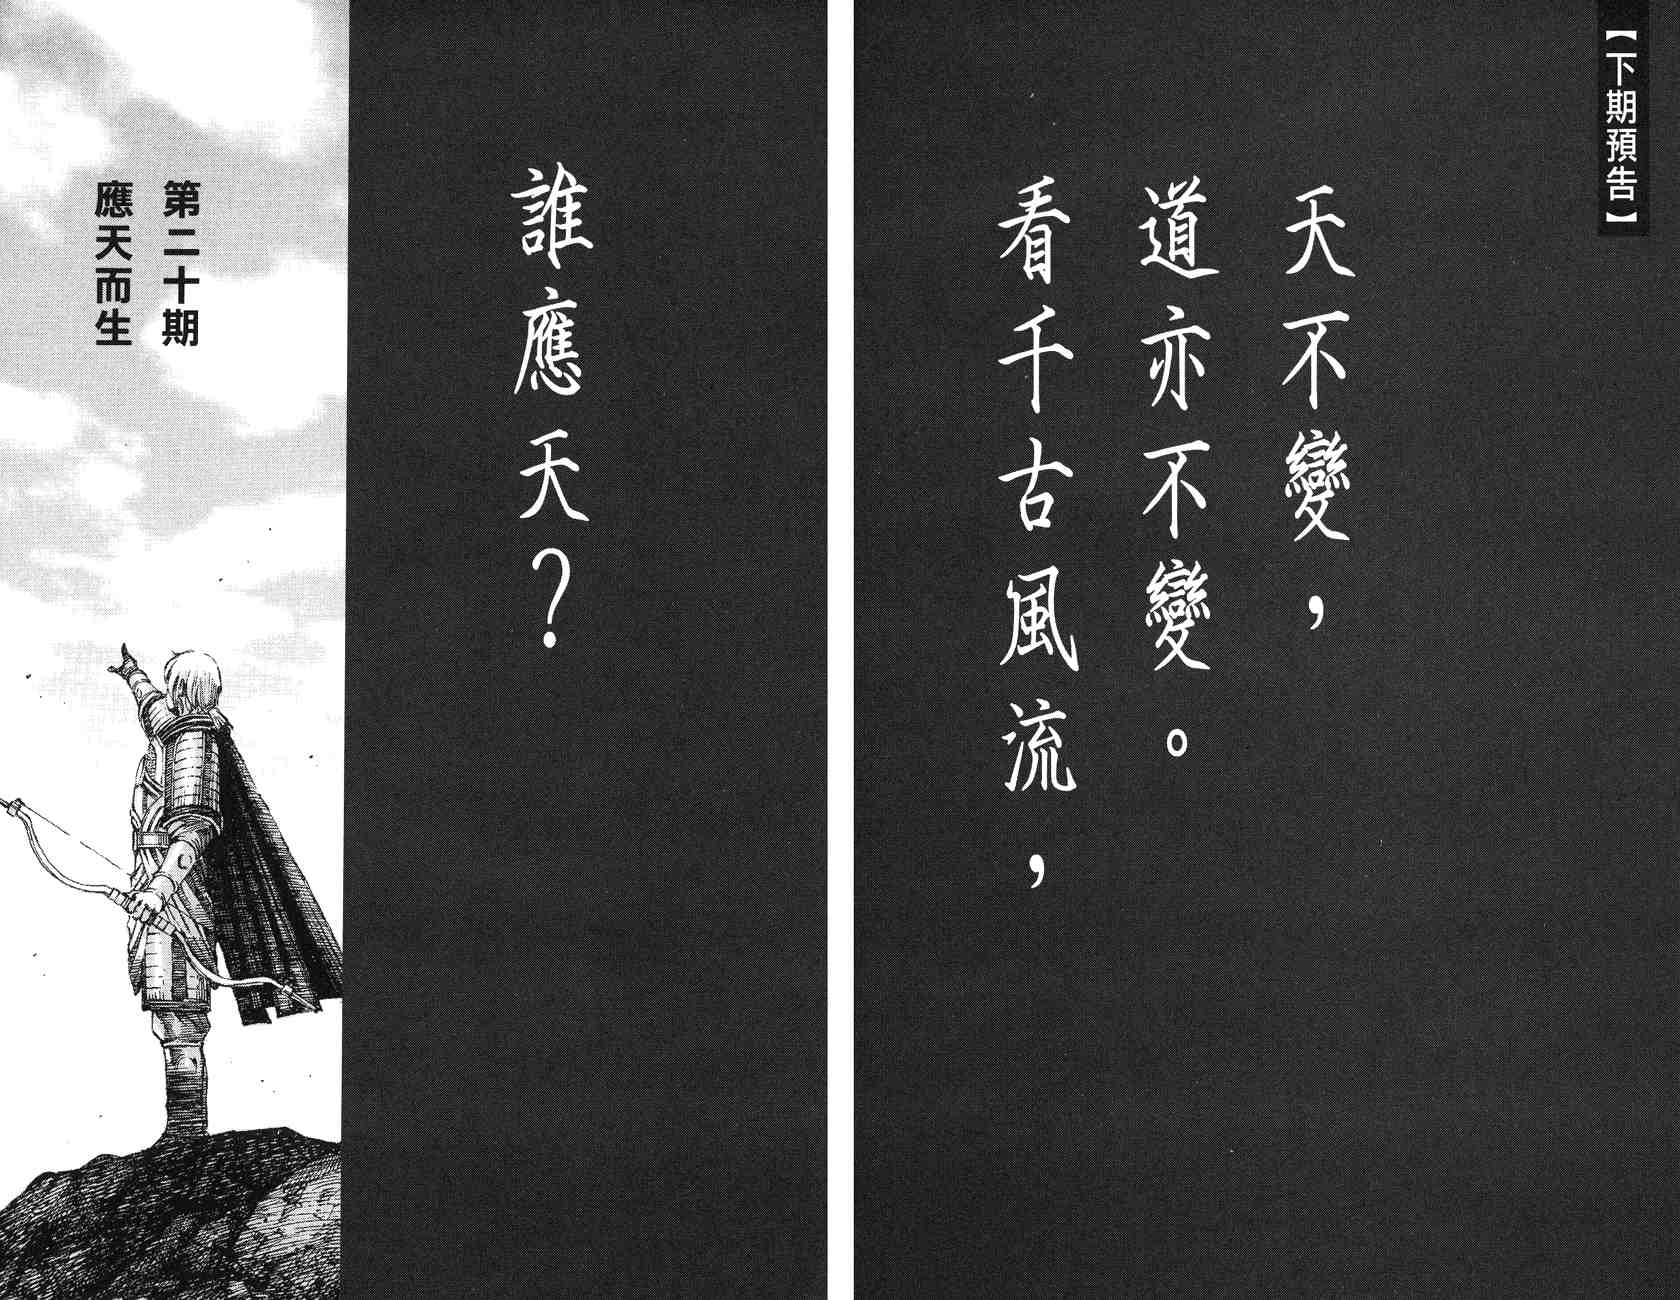 【下期預告】
天不變，
道亦不變。
看千古風流，
誰應天？
第二十期
應天而生